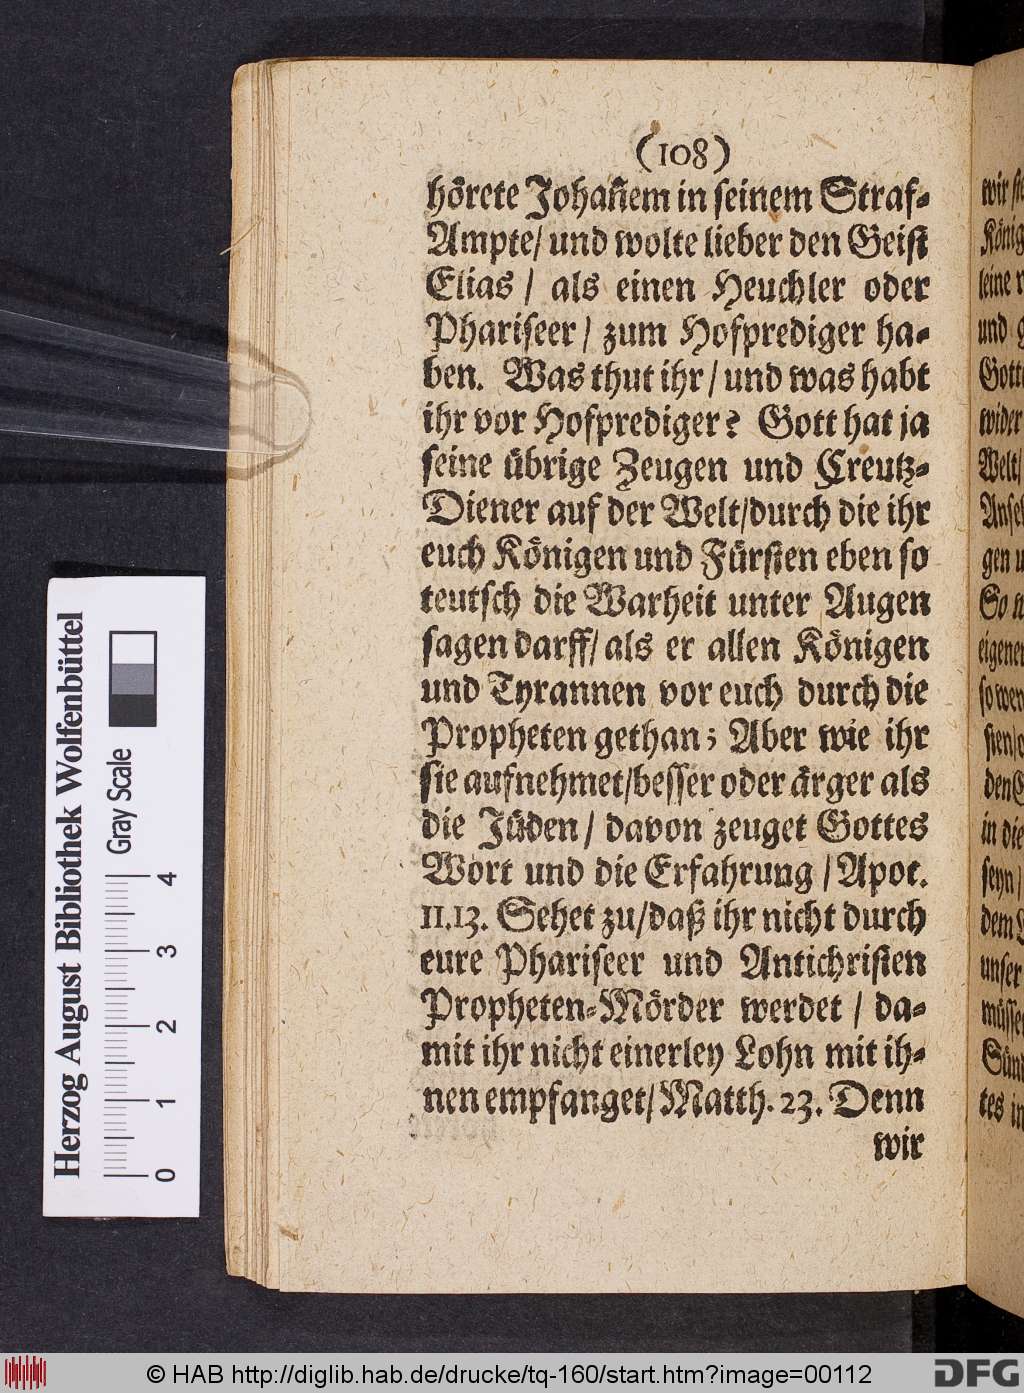 (108)
hörete Johañem in seinem Straf-
Ampte/ und wolte lieber den Geist
Elias / als einen Heuchler oder
Phariseer / zum Hofprediger ha-
ben. Was thut ihr / und was habt
ihr vor Hofprediger? Gott hat ja
seine übrige Zeugen und Creutz-
Diener auf der Welt/durch die ihr
euch Königen und Fürsten eben so
teutsch die Warheit unter Augen
sagen darff/ als er allen Königen
und Tyrannen vor euch durch die
Propheten gethan; Aber wie ihr
sie aufnehmet/besser oder ärger als
die Jüden / davon zeuget Gottes
Wort und die Erfahrung / Apoc.
11.13. Sehet zu/daß ihr nicht durch
eure Phariseer und Antichristen
Propheten-Mörder werdet / da-
mit ihr nicht einerley Lohn mit ih-
nen empfanget/Matth. 23. Denn
wir
wir
König
leine
und
Gott
wider
Welt/
gen
So
eigenen
in die
seyn /
dem
unser
tes in
Herzog August Bibliothek Wolfenbüttel
Gray Scale
0 1 2 3 4
© HAB http://diglib.hab.de/drucke/tq-160/start.htm?image=00112
DFG